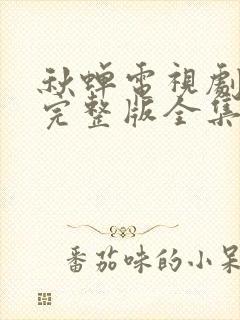 秋蝉電視劇
完整版全集
番茄味的小呆